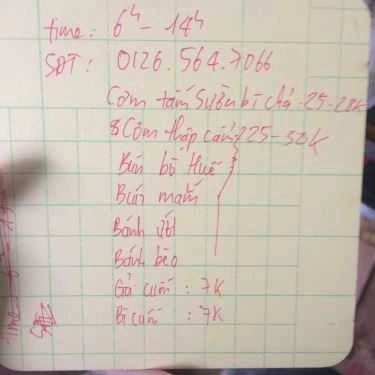 time: 6h - 14h
SĐT: 0126.564.7066
Cơm tấm sườn bì chả -25-28K
Cơm thập cẩm 25-30K
Bún bò Huế
Bún mắm
Bánh ướt
Bánh bèo
Gỏi cuốn : 7K
Bì cuốn : 7K
time